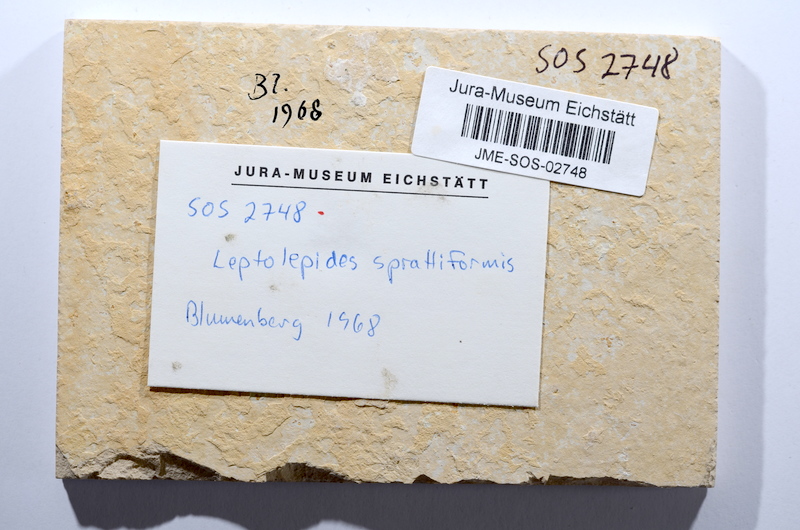 SOS 2748
Bl.
1968
Jura-Museum Eichstätt
JME-SOS-02748
JURA-MUSEUM EICHSTÄTT
SOS 2748
Leptolepides sprattiformis
Blumenberg 1968